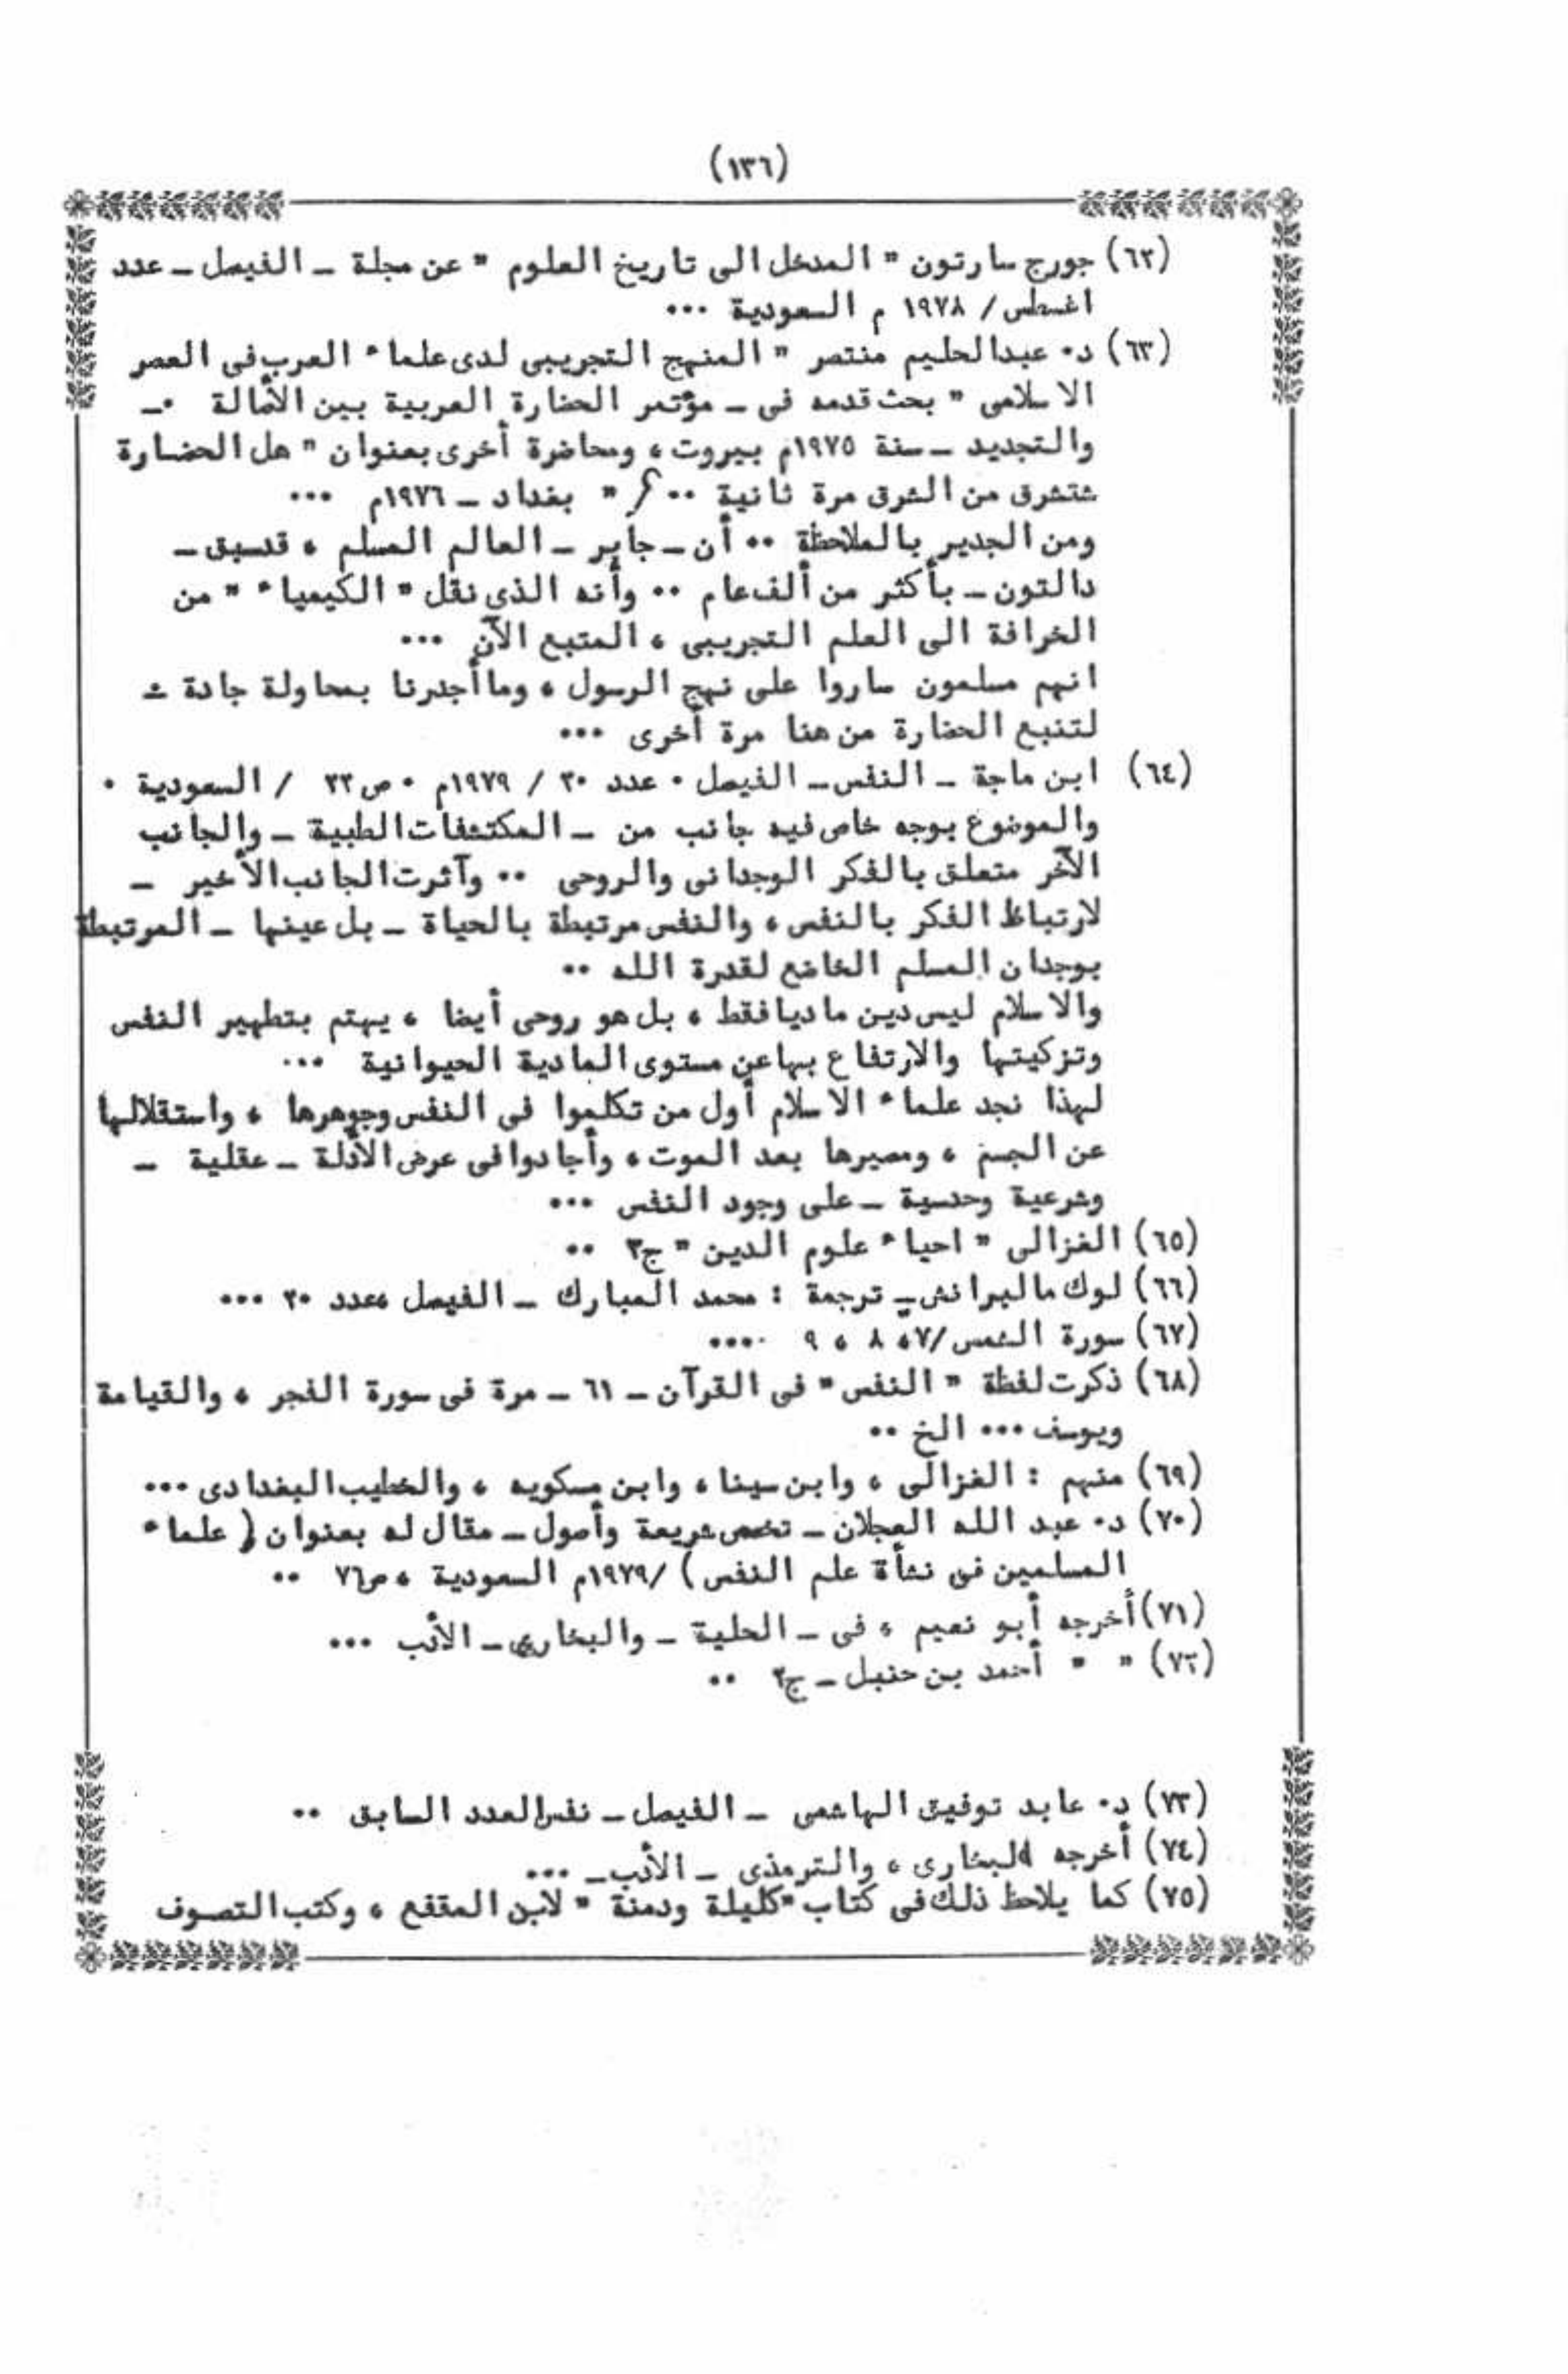 (١٣٦)
(٦٢) جورج سارتون " المدخل الى تاريخ العلوم " عن مجلة ـ الفيصل ـ عدد
اغسطس / ١٩٧٨ م السعودية ...
(٦٣) د. عبدالحليم منتصر " المنهج التجريبى لدى علماء العرب فى العصر
الاسلامى " بحث قدمه فى ـ مؤتمر الحضارة العربية بين الأصالة .ـ
والتجديد ـ سنة ١٩٧٥م بيروت ، ومحاضرة أخرى بعنوان " هل الحضارة
ستشرق من الشرق مرة ثانية .. ؟ " بغداد ـ ١٩٧٦م ...
ومن الجدير بالملاحظة .. أن ـ جابر ـ العالم المسلم ، قدسبق ـ
دالتون ـ بأكثر من ألف عام .. وأنه الذى نقل " الكيمياء " من
الخرافة الى العلم التجريبى ، المتبع الآن ...
انهم مسلمون ساروا على نهج الرسول ، وما أجدرنا بمحاولة جادة ـ
لتنبع الحضارة من هنا مرة أخرى ...
(٦٤) ابن ماجة ـ النفس ـ الفيصل . عدد ٣٠ / ١٩٧٩م . ص ٢٢ / السعودية .
والموضوع بوجه خاص فيه جانب من ـ المكتشفات الطبية ـ والجانب
الآخر متعلق بالفكر الوجدانى والروحى .. وآثرت الجانب الأخير ـ
لارتباط الفكر بالنفس ، والنفس مرتبطة بالحياة ـ بل عينها ـ المرتبطة
بوجدان المسلم الخاضع لقدرة الله ..
والاسلام ليس دين ماديا فقط ، بل هو روحى أيضا ، يهتم بتطهير النفس
وتزكيتها والارتفاع بها عن مستوى المادية الحيوانية ...
لهذا نجد علماء الاسلام أول من تكلموا فى النفس وجوهرها ، واستقلالها
عن الجسم ، ومصيرها بعد الموت ، وأجادوا فى عرض الأدلة ـ عقلية ـ
وشرعية وحدسية ـ على وجود النفس ...
(٦٥) الغزالى " احياء علوم الدين " ج٣ ..
(٦٦) لوك مالبرانش ـ ترجمة : محمد المبارك ـ الفيصل ،عدد ٣٠ ...
(٦٧) سورة الشمس /٧، ٨ ، ٩ ....
(٦٨) ذكرت لفظة " النفس " فى القرآن ـ ٦١ ـ مرة فى سورة الفجر ، والقيامة
ويوسف ... الخ ..
(٦٩) منهم : الغزالى ، وابن سينا ، وابن مسكويه ، والخطيب البغدادى ...
(٧٠) د. عبد الله العجلان ـ تخصص شريعة وأصول ـ مقال له بعنوان ( علماء
المسلمين فى نشأة علم النفس ) /١٩٧٩م السعودية ، ص٧٦ ..
(٧١) أخرجه أبو نعيم ، فى ـ الحلية ـ والبخارى ـ الأدب ...
(٧٢) " " أحمد بن حنبل ـ ج٢ ..
(٧٣) د. عابد توفيق الهاشمى ـ الفيصل ـ نفس العدد السابق ..
(٧٤) أخرجه البخارى ، والترمذى ـ الأدب ـ ...
(٧٥) كما يلاحظ ذلك فى كتاب "كليلة ودمنة " لابن المقفع ، وكتب التصوف